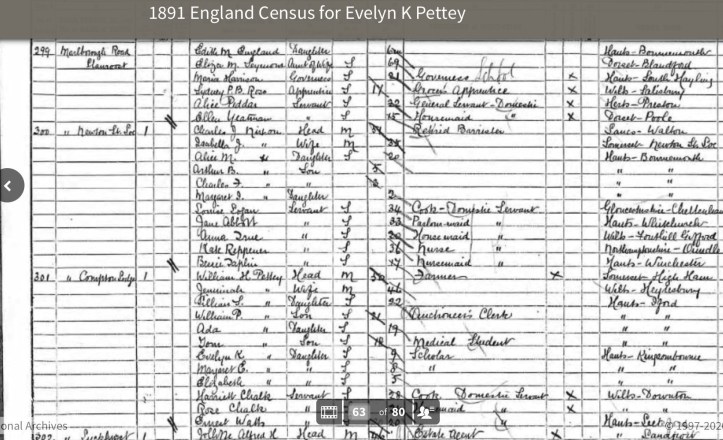 1891 England Census for Evelyn K Pettey
299 Marlborough Road Edith M. England Daughter 6m Hants - Bournemouth
Claremont Eliza M. Seymour Aunt S 69 Dorset - Blandford
Maria Harrison Governess S 21 Governess School x Hants - South Hayling
Sydney P.B. Rose Apprentice S 17 Grocer's Apprentice x Wilts - Salisbury
Alice Peddar Servant S 22 General Servant - Domestic x Herts - Preston
Ellen Yeatman " S 15 Housemaid " x Dorset - Poole
300 " Newton St. Loe 1 Charles J. Head M Retired Barrister Lancs - Walton
Isabella J. " Wife M Somerset - Newton St. Loe
Alice M. " Daughter S 20 Hants - Bournemouth
Arthur B. " Son 5 " "
Charles F. " " " "
Margaret I. " Daughter 2 " "
Louisa Servant S 34 Cook - Domestic Servant Gloucestershire - Cheltenham
Jane Abbott " S 33 Parlourmaid " Hants - Whitchurch
Anna True " S 20 Housemaid " Wilts - Fonthill Gifford
Kate " S 36 Nurse " Northamptonshire - Oundle
Taplin " S 17 Nursemaid " Hants - Winchester
301 " Compton Lodge 1 William H. Pettey Head M Farmer x Somerset - High Ham
Jemimah " Wife M 46 Wilts - Heytesbury
Lillian L. " Daughter S 22 Hants - Iford
William P. " Son S 21 Auctioneer's Clerk " "
Ada " Daughter S 19 " "
Tom " Son S 18 Medical Student " "
Evelyn K. " Daughter S 9 Scholar Hants - Kingsbournne
Margaret E. " " S 8 " " "
Elizabeth " " S 5 " "
Harriett Chalk Servant S Cook Domestic Servant x Wilts - Downton
Rose Chalk " maid " x " "
Ernest Watts " Hants -
302 Alfred H. Head M Estate Agent x Landport
63 of 80
onal Archives
© 1997-202